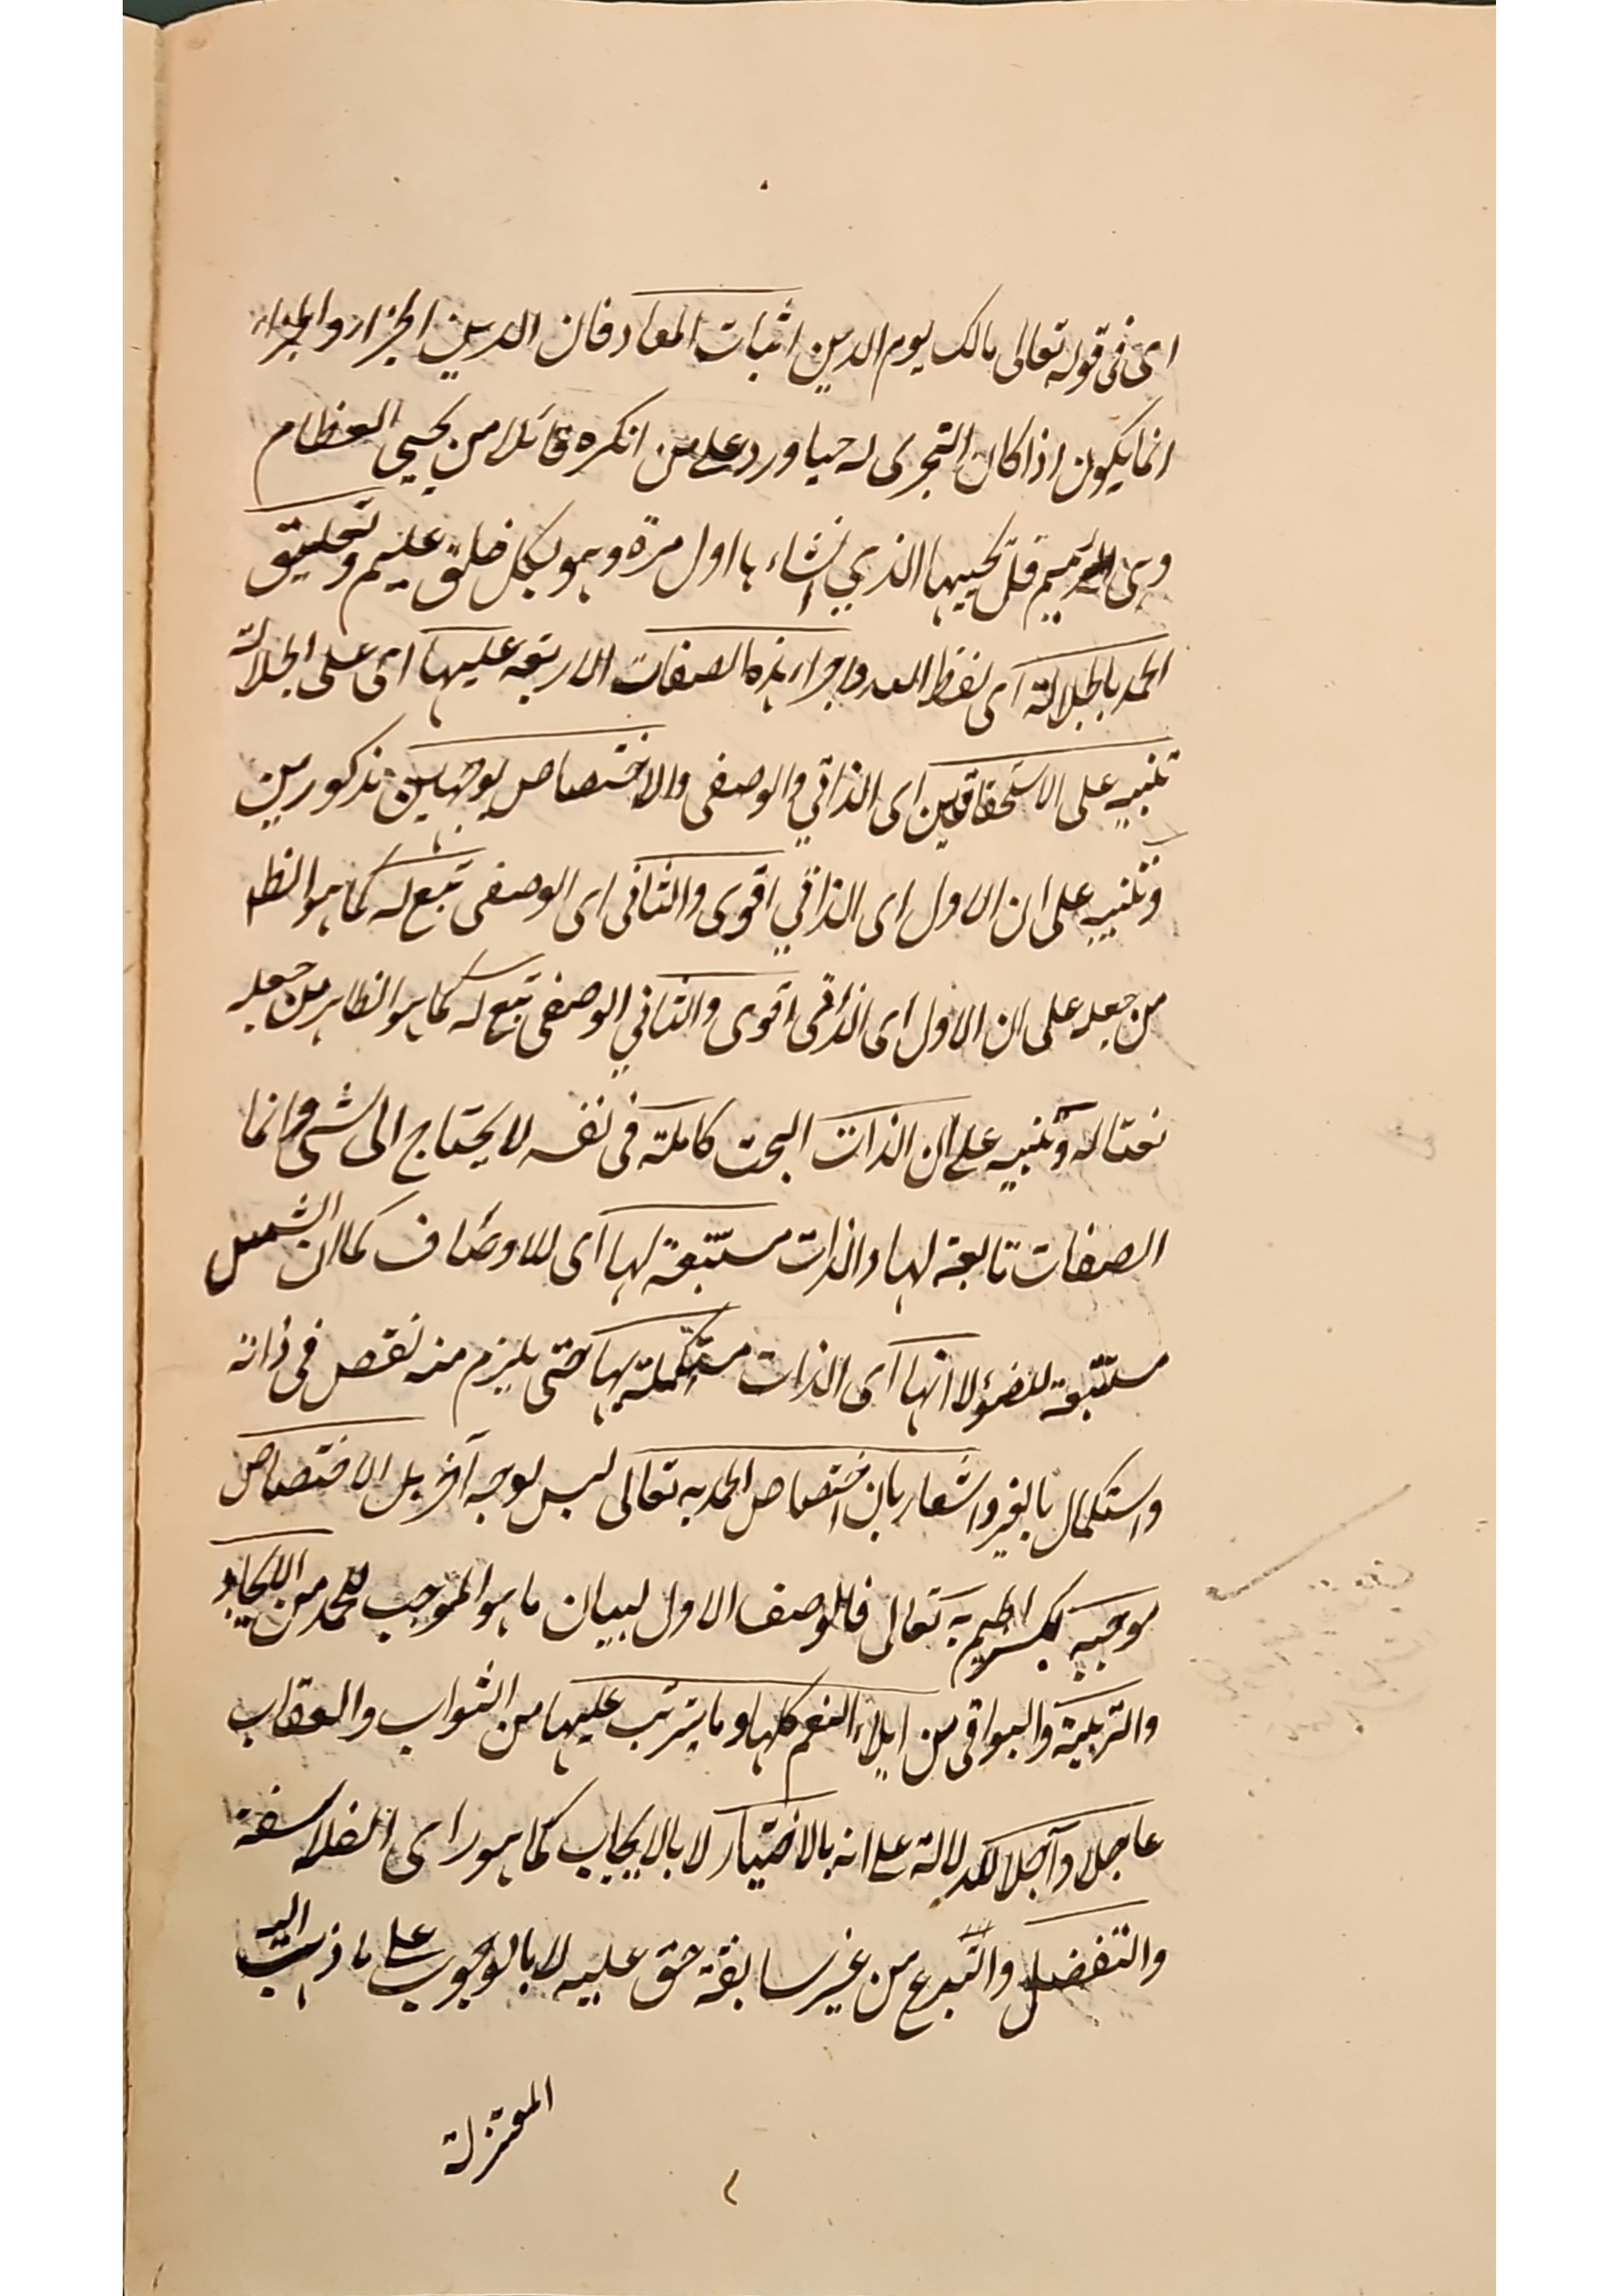 ای فی قوله تعالی مالک یوم الدین اثبات المعاد فان الدین الجزاء والجزاء
انما یکون اذا کان التجری له حیا ورد علی من انکره قائلا من یحیی العظام
وهی الرمیم قل یحییها الذی انشاء ها اول مرة وهو بکل خلق علیم وتعلیق
الحمد بالجلالة ای لفظ الله واجراء هذه الصفات الاربعة علیها ای علی الجلالة
تنبیه علی الاستحقاقین ای الذاتی والوصفی والاختصاص بوجهین مذکورین
وتنبیه علی ان الاول ای الذاتی اقوی والثانی ای الوصفی تبع له کما هو الظ
من جعله علی ان الاول ای الذاتی اقوی والثانی الوصفی تبع له کما هو الظاهر من جعله
نعتا له وتنبیه علی ان الذات البحت کاملة فی نفسه لا یحتاج الی شیء وانما
الصفات تابعة لها والذات مستتبعة لها ای للاوصاف کما ان الشمس
مستتبعة للضوء لا انها ای الذات مستکملة بها حتی یلزم منه نقص فی ذاته
واستکمال بالغیر واشعار بان اختصاص الحمد به تعالی لیس لوجه آخر بل الاختصاص
موجبه بکسر الجیم به تعالی فالوصف الاول لبیان ما هو الموجب للحمد من الایجاد
والتربیة والبواقی من ایلاء النعم کلها وما یترتب علیها من الثواب والعقاب
عاجلا وآجلا للدلالة علی انه بالاختیار لا بالایجاب کما هو رای الفلاسفة
والتفضل والتبرع من غیر سابقة حق علیه لا بالوجوب علی ما ذهبت الیه
المعتزلة
٢